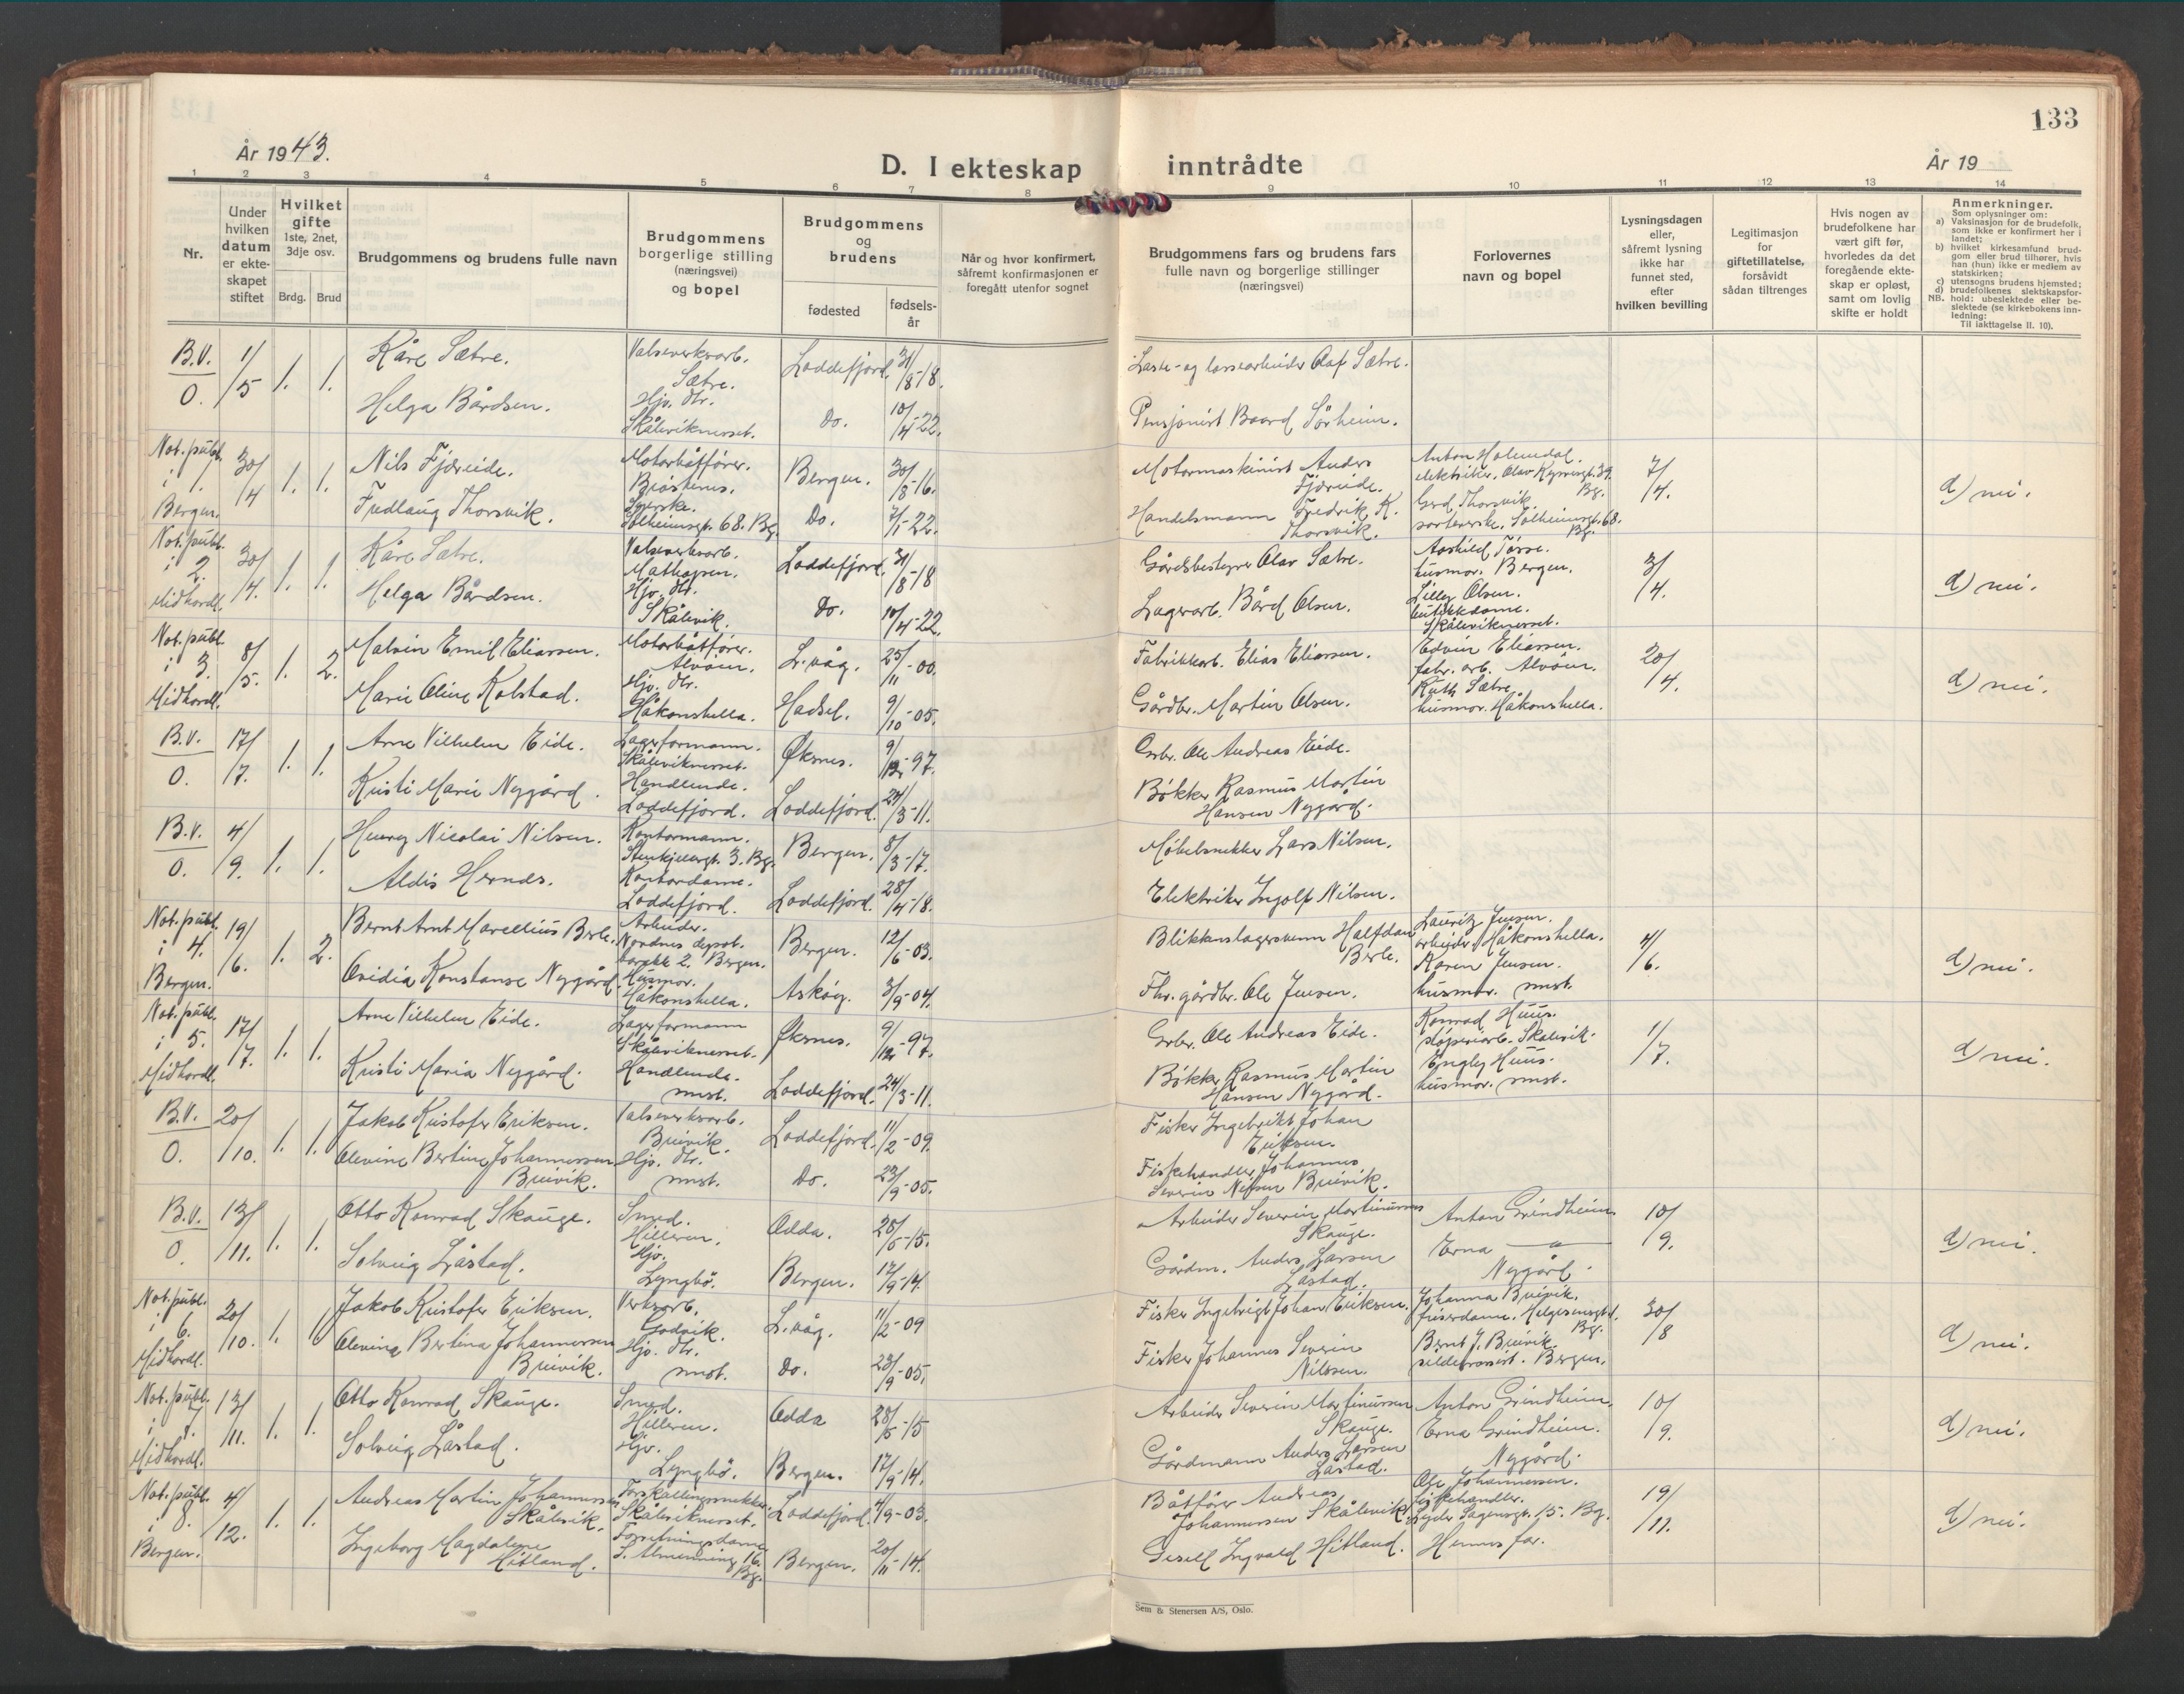 133
År 1943.
D. I ekteskap inntrådte
År 19
1 2 3 4 5 6 7 8 9 10 11 12 13 14
Nr.
Under hvilken datum er ekteskapet stiftet
Hvilket gifte 1ste, 2net, 3dje osv.
Brdg. Brud
Brudgommens og brudens fulle navn
Brudgommens borgerlige stilling (næringsvei) og bopel
Brudgommens og brudens
fødested
fødselsår
Når og hvor konfirmert, såfremt konfirmasjonen er foregått utenfor sognet
Brudgommens fars og brudens fars fulle navn og borgerlige stillinger (næringsvei)
Forlovernes navn og bopel
Lysningsdagen eller, såfremt lysning ikke har funnet sted, efter hvilken bevilling
Legitimasjon for giftetillatelse, forsåvidt sådan tiltrenges
Hvis nogen av brudefolkene har vært gift før, hvorledes da det foregående ekteskap er opløst, samt om lovlig skifte er holdt
Anmerkninger.
Som oplysninger om:
a) Vaksinasjon for de brudefolk, som ikke er konfirmert her i landet;
b) hvilket kirkesamfund brudgom eller brud tilhører, hvis han (hun) ikke er medlem av statskirken;
c) utensogns brudens hjemsted;
d) brudefolkenes slektskapsforhold: ubeslektede eller beslektede (se kirkebokens innledning:
NB.
Til iakttagelse II. 10).
B.V. 1/5 1. 1. Kåre Sætre. Valseverksarb. Sætre. Loddefjord. 31/8-18. Laste- og lossearbeider Olaf Sætre.
O. Helga Bårdsen. Hjv. dtr. Skåleviknesset. Do. 10/4-22. Pensjonist Baard Sørheim.
Not. publ. i 1. Bergen. 30/4 1. 1. Nils Fjæreide. Motorbåtfører. Bergen. 30/8-16. Motormaskinist Anders Fjæreide. Anton Holmedal. elektriker. Olav Kyrresgt. 39. Bg. 7/4. d) nei.
Fredlaug Thorsvik. Syerske. Solheimsgt. 68. Bg. Do. 7/1-22. Handelsmann Fredrik K. Thorsvik. Gerd Thorsvik. Solheimsgt. 68. Bg.
Not. publ. i 2. Midhordl. 30/4. 1. 1. Kåre Sætre. Valseverksarb. Mathopen. Loddefjord. 31/8-18 Gårdsbestyrer Olav Sætre. husmor. Bergen. 3/4. d) nei.
Helga Bårdsen. Hjv. dtr. Skålevik. Do. 10/4-22. Lagerarb. Bård Olsen. Lilly Olsen. butikkdame. Skåleviknesset.
Not. publ. i 3. Midhordl. 8/5. 1. 2. Malvin Emil Eliassen. Motorbåtfører. Alvøen. L.våg. 25/11-00. Fabrikkarb. Elias Eliassen. Edvin Eliassen. fabr. arb. Alvøen. 20/4. d) nei.
Marie Oline Kolstad. Hjv. dtr. Håkonshella. Hadsel. 9/10-05. Gårdbr. Martin Olsen. Ruth Sætre. husmor. Håkonshella.
B.V. 17/7. 1. 1. Arne Vilhelm Eide. Lagerformann. Skåleviknesset. Øksnes. 9/12-97. Grbr. Ole Andreas Eide.
O. Kristi Marie Nygård. Handlende. Loddefjord. Loddefjord. 24/3-11. Bøkker Rasmus Martin Hansen Nygård.
B.V. 4/9. 1. 1. Henry Nicolai Nilsen. Kontormann. Bergen. 8/3-17. Møbelsnekker Lars Nilsen.
O. Aldis Hernes. Kontordame. Loddefjord. Loddefjord. 28/4-18. Elektriker Ingolf Nilsen.
Not. publ. i 4. Bergen. 19/6. 1. 2. Bernt Arnt Marellius Berle. Arbeider. Nordnes barakk 2. Bergen. Bergen. 12/6-03. Blikkenslagersvenn Halfdan Berle. Lauritz Jensen. arbeider. Håkonshella. 4/6. d) nei.
Ovidia Konstanse Nygård. Husmor. Håkonshella. Askøy. 3/9-04. Fhv. gårdbr. Ole Jensen. Karen Jensen. husmor. smst.
Not. publ. i 5. Midhordl. 17/7. 1. 1. Arne Vilhelm Eide. Lagerformann Skåleviknesset. Øksnes. 9/12-97. Grbr. Ole Andreas Eide. Konrad Huus. støperiarb. Skålevik. 1/7. d) nei.
Kristi Maria Nygård. Handlende. smst. Loddefjord. 24/3-11. Bøkker Rasmus Martin Hansen Nygård. Engley Huus. husmor. smst.
B.V. 20/10. 1. 1. Jakob Kristofer Eriksen. Valseverksarb. Breivik. Loddefjord. 11/2-09. Fisker Ingebrikt Johan Eriksen.
O. Olevine Bertine Johannessen Breivik. Hjv. dtr. smst. Do. 23/9-05. Fiskehandler Johannes Severin Nilsen Breivik.
B.V. 13/11. 1. 1. Otto Konrad Skauge. Smed. Hilleren. Odda. 28/5-15. Arbeider Severin Martinussen Skauge. Anton Grindheim. 10/9. d) nei.
O. Solveig Låstad. Hjv. Lyngbø. Bergen. 17/9-14. Gårdm. Anders Larsen Låstad. Erna — " — Nygård.
Not. publ. i 6. Midhordl. 20/10. 1. 1. Jakob Kristofer Eriksen. Verksarb. Godvik. L.våg. 11/2-09 Fisker Ingebrigt Johan Eriksen. Johanna Breivik. frisørdame. Bg. 30/8 d) nei.
Olevina Bertina Johannessen Breivik. Hjv. dtr. smst. Do. 23/9-05. Fisker Johannes Severin Nilssen. Bernt J. Breivik Bergen.
Not. publ. i 7. Midhordl. 13/11. 1. 1. Otto Konrad Skauge. Smed. Hilleren. Odda 28/5-15 Arbeider Severin Martinussen Skauge. Anton Grindheim. 10/9. d) nei.
Solveig Låstad. Hjv. Lyngbø. Bergen. 17/9-14. Gårdmann Anders Larsen Låstad. Erna Grindheim. Nygård.
Not. publ. i 8. Bergen. 4/12. 1. 1. Andreas Martin Johannessen Skålevik. Forskallingssnekker. Skåleviknesset. Loddefjord. 4/9-03. Båtfører Andreas Johannessen Skålevik. Ole Johannessen. fiskehandler. Lyder Sagensgt. 15. Bg. 19/11. d) nei.
Ingeborg Magdalene Hitland. Forretningsdame. S. Almenning 16. Bg. Bergen. 20/11-14. Gesell Ingvald Hitland. Hennes far.
Sem & Stenersen A/S, Oslo.